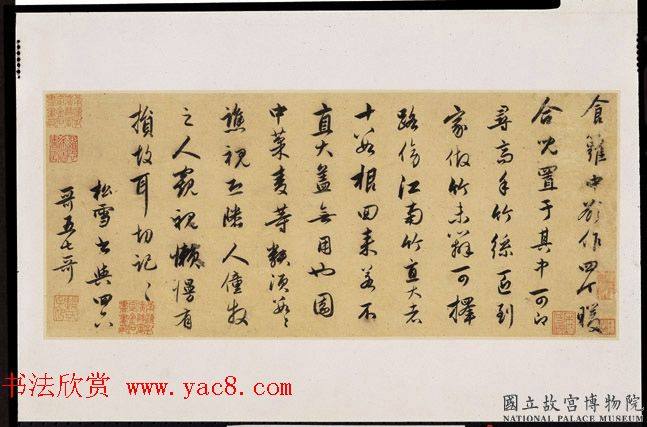 食籮中欲作四个暖
合兒置于其中可即
尋高手竹絲匠到
家做竹未辦可擇
路傍江南竹直大者
十數根回來若不
直大蓋無用也園
中菜麦等輭須數〻
譙視左隣人僮救
之人窺視懶慢有
損故耳切記〻
松雪書與四六
哥五七哥
书法欣赏 www.yac8.com
國立故宮博物院
NATIONAL PALACE MUSEUM